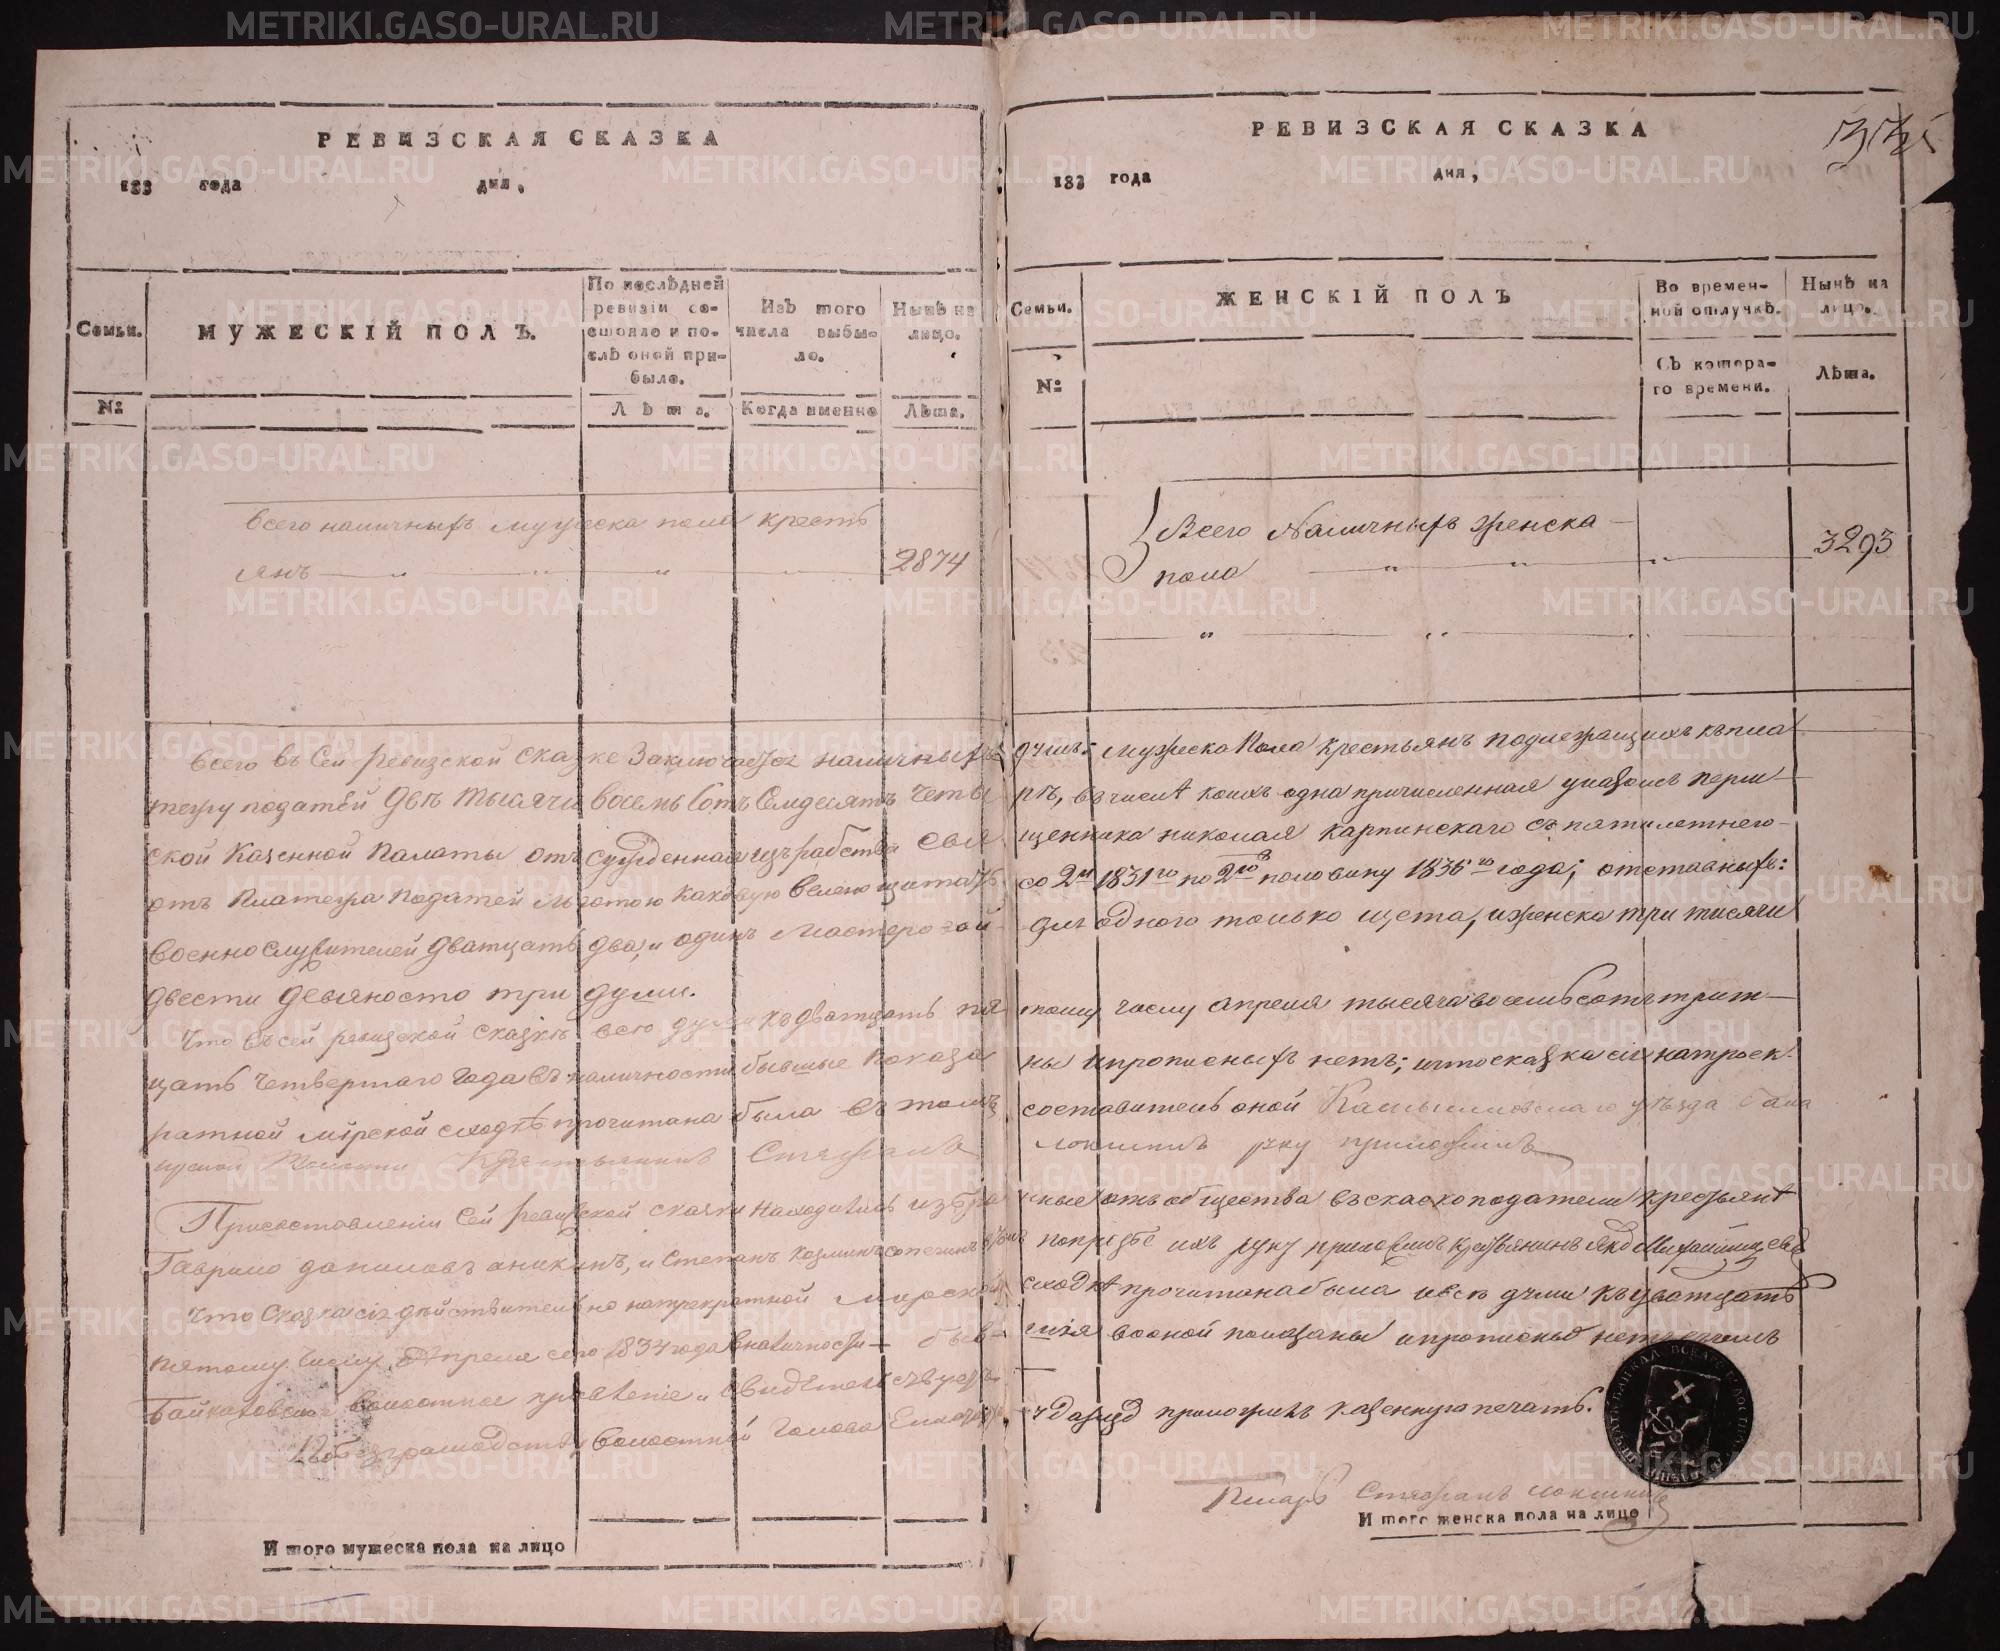 РЕВИЗСКАЯ СКАЗКА
183 года дня,
Семьи.
МУЖЕСКІЙ ПОЛЪ.
По послѣдней ревизіи состояло и послѣ оной прибыло.
Изъ того числа выбыло.
Нынѣ на лицо.
№
Лѣта.
Когда именно
Лѣта.
Всего наличныхъ мужеска пола кресть
янъ 2874
всего въ сей ревизской сказке заключается наличныхъ
тежу податей двѣ тысячи восемь сотъ семдесятъ четы
ской казенной палаты отъ сужденная изъ рабства свя
отъ платежа податей льготою каковую велено щитать
военнослужителей дватцать два, и одинъ мастеровой
двести девяносто три души.
Что въ сей ревизской сказкѣ всѣ души къ дватцать пя
цать четвертаго года въ наличности бывшые показа
ратной мірской сходкѣ прочитана была въ томъ
Крестьянинъ Стефанъ
При составленіи сей ревизской сказки находились избра
Гаврило даниловъ аникинъ, и Степанъ
Что сказка сія действительно натрекратной мирской
пятому числу Апреля сего 1834 года в наличности быв
волостное правленіе и свидѣтельствуетъ
волостный голова
РЕВИЗСКАЯ СКАЗКА
183 года дня,
Семьи.
ЖЕНСКІЙ ПОЛЪ
Во временной отлучкѣ.
Нынѣ на лицо.
№
Съ котораго времени.
Лѣта.
Всего Наличныхъ женска
пола 3293
душъ: мужеска пола крестьянъ подлежащихъ къ пла
рѣ, въ числѣ коихъ одна причисленная указомъ перм
щенника николая карпинскаго съ пятилетнего
со 2й 1831го по 2ю половину 1836го года; отставныхъ:
для одного только щета, и женска три тысячи
тому числу апреля тысяча восемь сотъ трит
ны и прописныхъ нетъ; и что сказка сія на троек
составитель оной Камышловскаго уѣзда
локшинъ руку приложилъ
ные отъ общества въ сказкоподатели крестьянѣ
по прозбѣ ихъ руку приложилъ крестьянинъ
сходкѣ прочитана была и всѣ души къ дватцать
шія в оной показаны и прописныхъ нетъ в чемъ
приложитъ казенную печать.
Писарь Стефанъ локшинъ
И того мужеска пола на лицо
И того женска пола на лицо